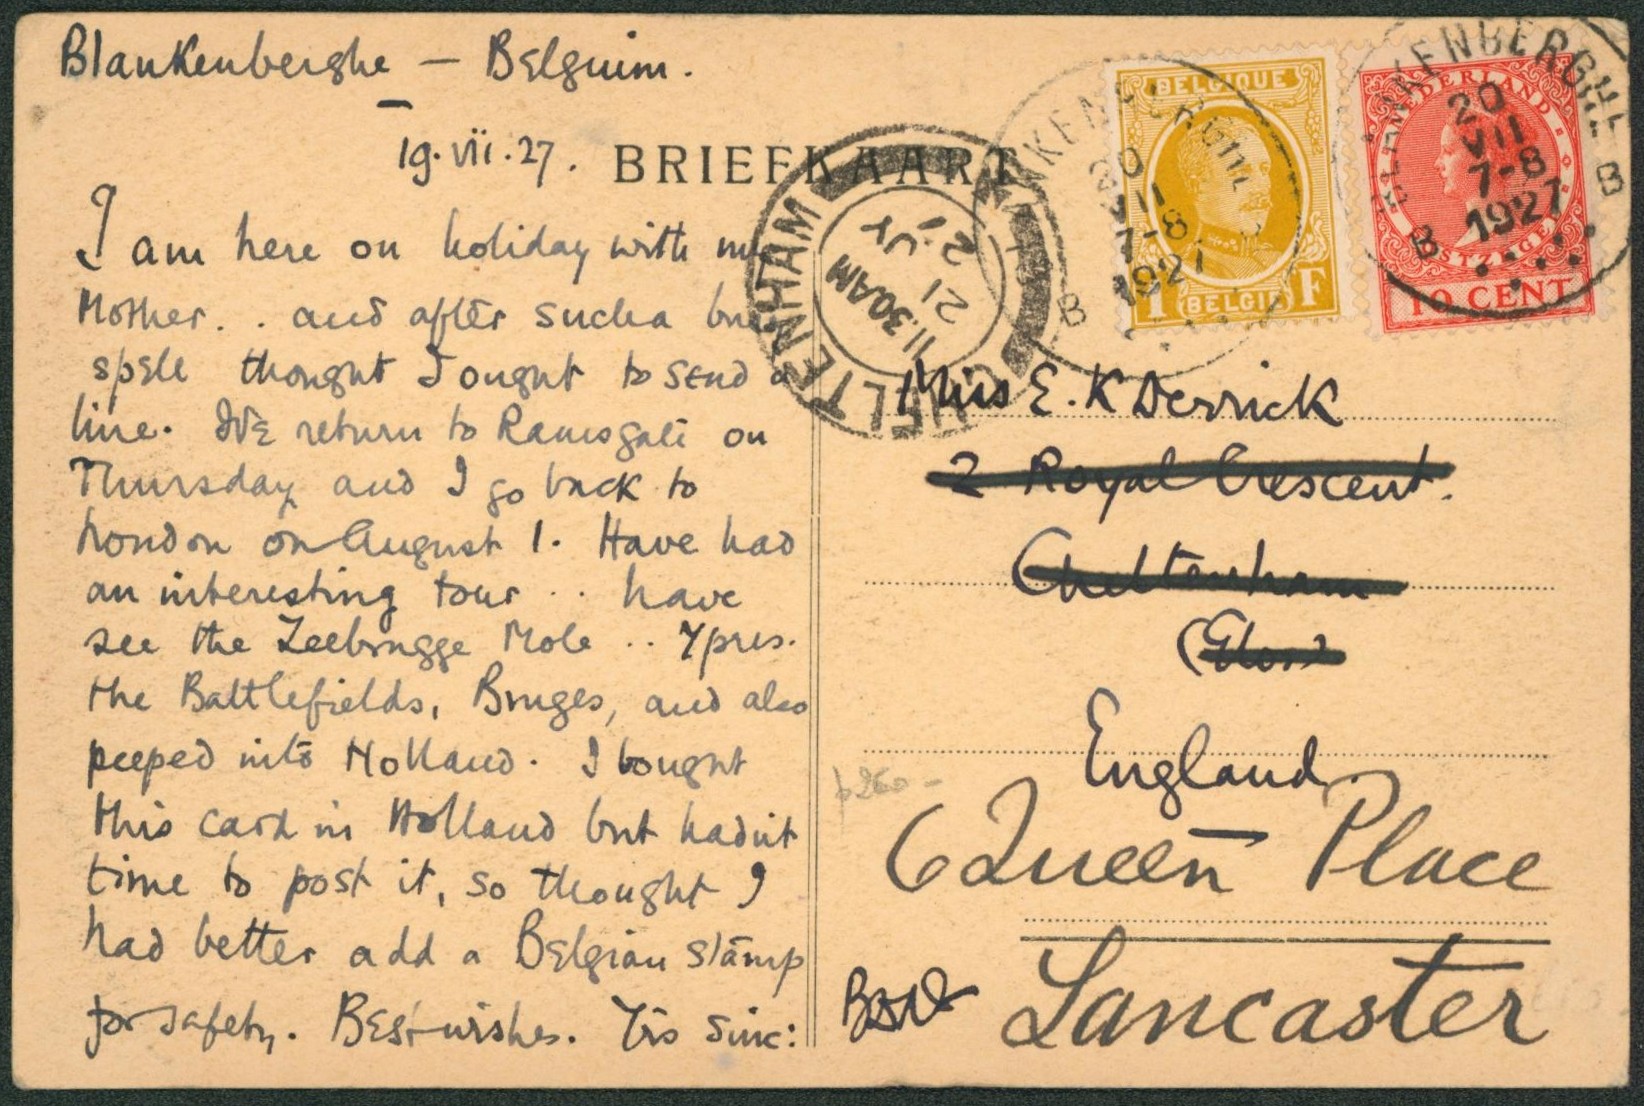 Blankenberghe — Belgium.
19.vii.27.
BRIEFKAART
I am here on holiday with my
Mother. . and after such a busy
spell thought I ought to send a
line. We return to Ramsgate on
Thursday and I go back to
London on August 1. Have had
an interesting tour .. have
see the Zeebrugge Mole .. Ypres.
the Battlefields, Bruges, and also
peeped into Holland. I bought
this card in Holland but hadn't
time to post it, so thought I
had better add a Belgian stamp
for safety. Best wishes. Yrs sinc:
CHELTENHAM
11.30 AM
21 JY
BLANKENBERGHE
20
VII
7-8
1927
B B
BELGIQUE
1 F
BELGIË
BLANKENBERGHE
20
VII
7-8
1927
B B
NEDERLAND
POSTZEGEL
10 CENT
Miss E. K Derrick
2 Royal Crescent.
Cheltenham
(Glos)
England.
6 Queen Place
Lancaster